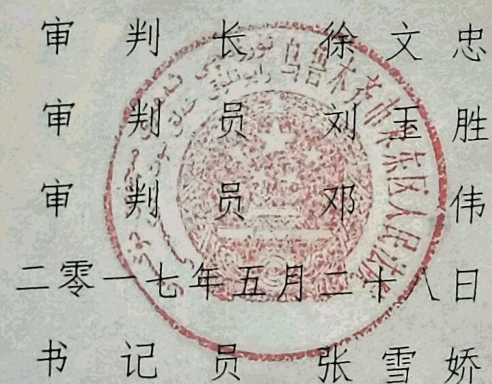 审判长 徐文忠
审判员 刘玉胜
审判员 邓伟
二零一七年五月二十八日
书记员 张雪娇
乌鲁木齐市米东区人民法院